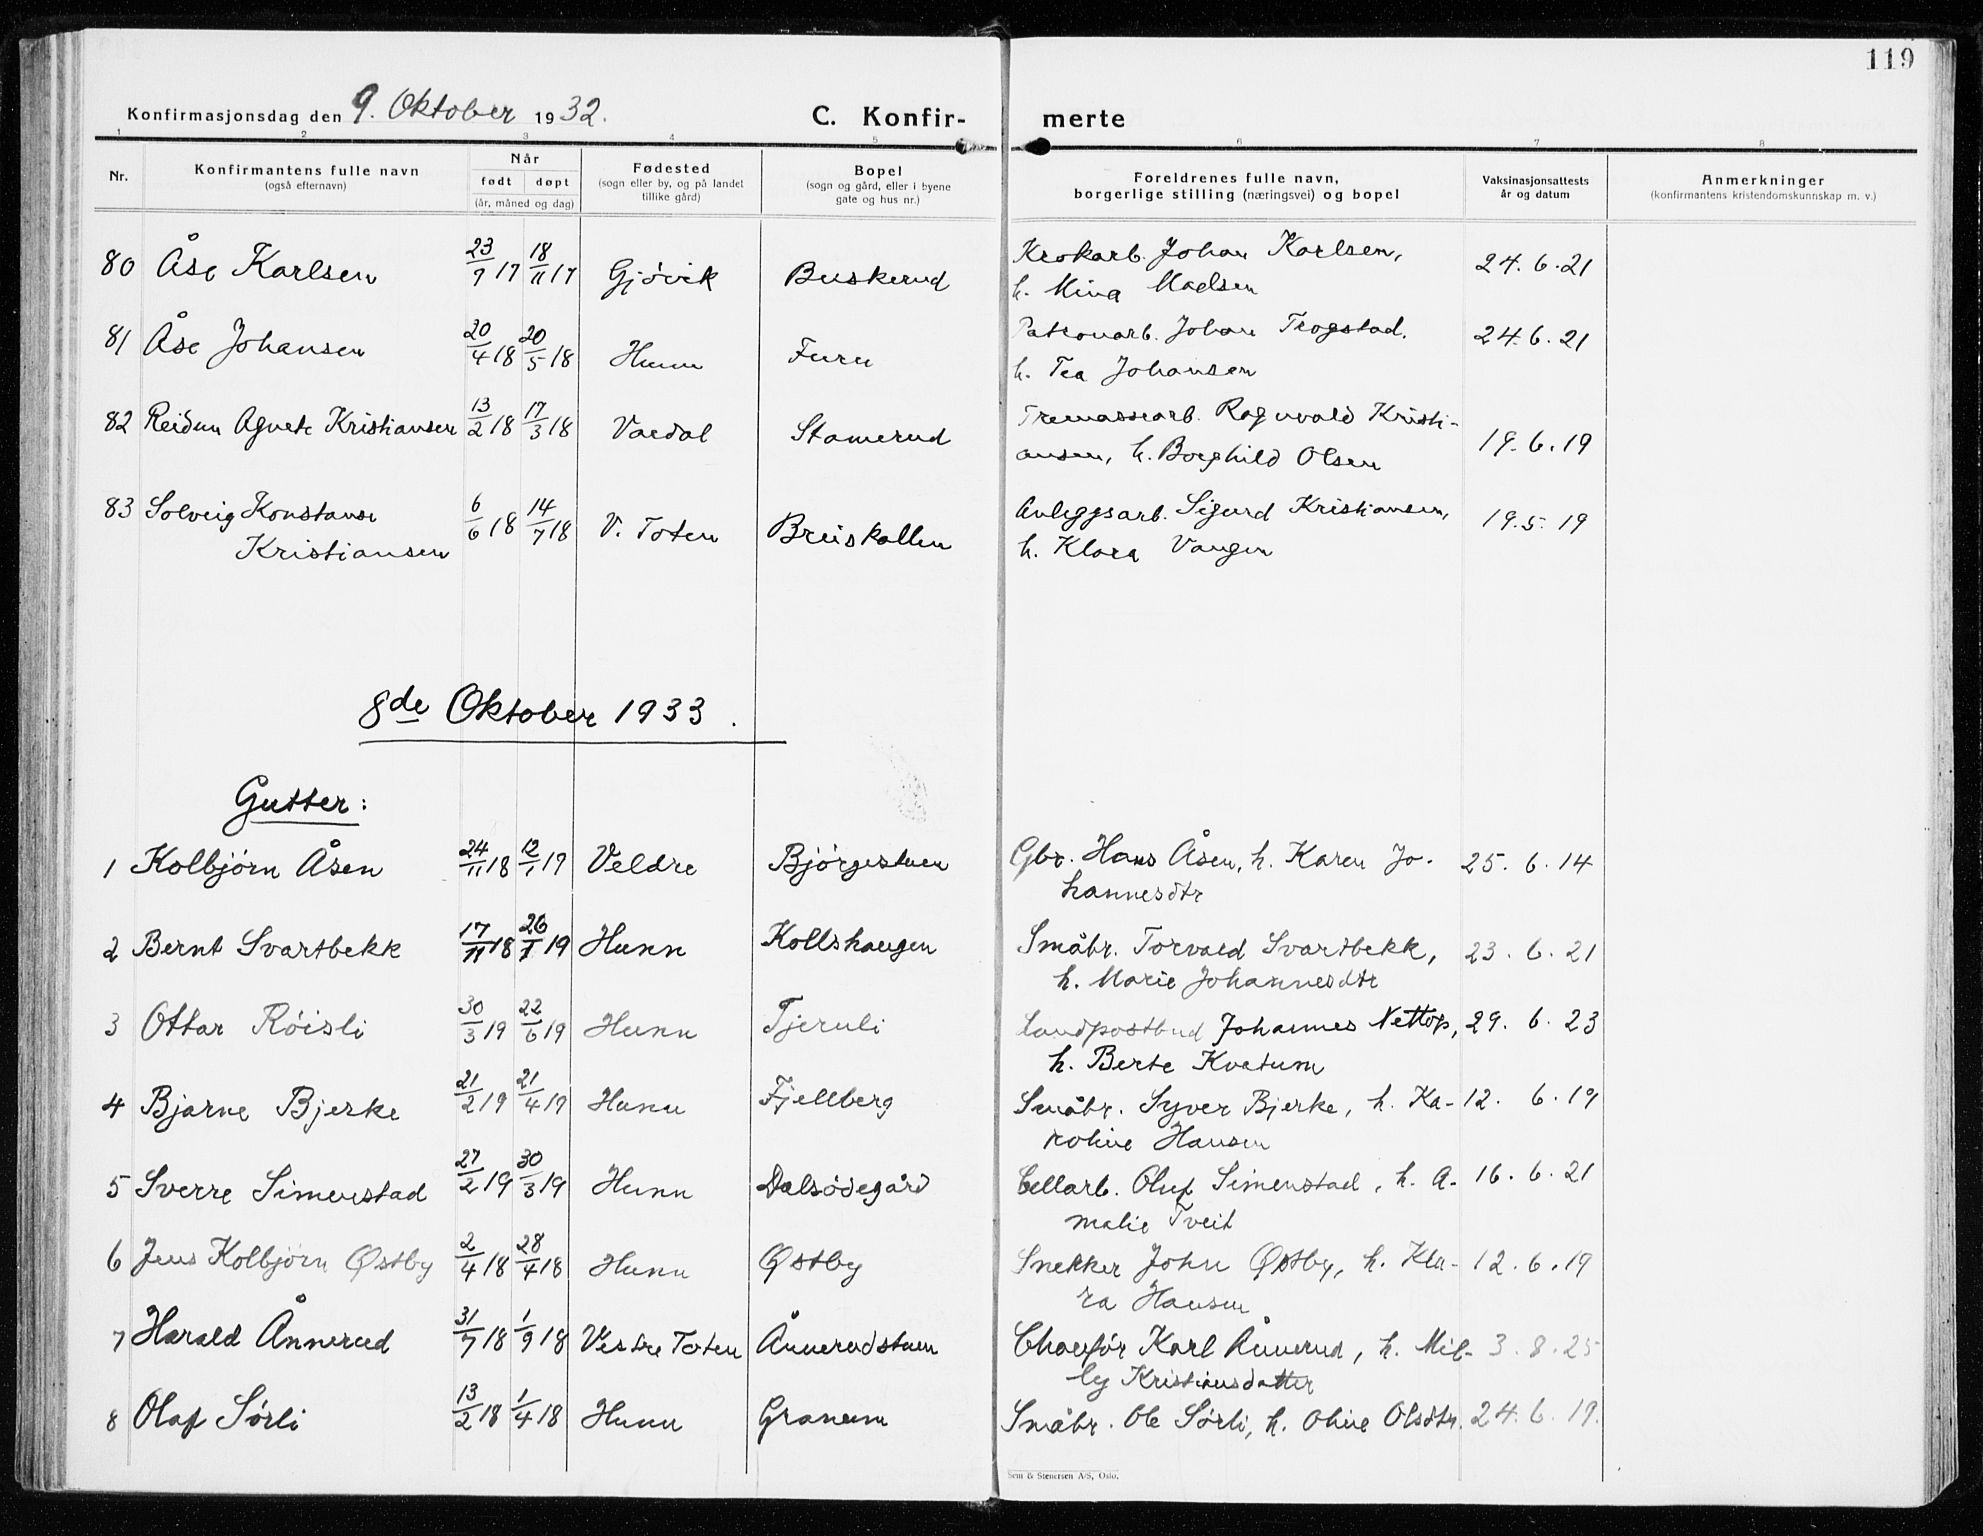 119
Konfirmasjonsdag den 9. Oktober 1932. C. Konfir- merte
1 2 3 4 5 6 7 8
Nr. Konfirmantens fulle navn (også efternavn) Når født døpt (år, måned og dag) Fødested (sogn eller by, og på landet tillike gård) Bopel (sogn og gård, eller i byene gate og hus nr.) Foreldrenes fulle navn, borgerlige stilling (næringsvei) og bopel Vaksinasjonsattests år og datum Anmerkninger (konfirmantens kristendomskunnskap m. v.)
80 Åse Karlsen 23/9 17 18/11 17 Gjövik Buskerud Krokarb. Johan Karlsen, 24.6.21
h. Mina Madsen
81 Åse Johansen 20/4 18 20/5 18 Hunn Furu Patronarb. Johan Trogstad. 24.6.21
h. Tea Johansen
82 Reidun Agnete Kristiansen 13/2 18 17/3 18 Vardal Stamerud Tremassearb. Ragnvald Kristi- 19.6.19
ansen, h. Borghild Olsen
83 Solveig Konstanse 6/6 18 14/7 18 V. Toten Breiskallen Anleggsarb. Sigurd Kristiansen, 19.5.19
Kristiansen h. Klara Vangen
8de Oktober 1933.
Gutter:
1 Kolbjörn Åsen 24/11 18 12/1 19 Veldre Bjørgestuen Gbr. Hans Åsen, h. Karen Jo- 25.6.14
hannesdtr
2 Bernt Svartbekk 17/11 18 26/1 19 Hunn Kollshaugen Småbr. Torvald Svartbekk, 23.6.21
h. Marie Johannesdtr
3 Ottar Röisli 30/3 19 22/6 19 Hunn Tjeruli Landpostbud Johannes Nettop, 29.6.23
h. Berte Kvatum
4 Bjarne Bjerke 21/2 19 21/4 19 Hunn Fjellberg Småbr. Syver Bjerke, h. Ka- 12.6.19
roline Hansen
5 Sverre Simenstad 27/2 19 30/3 19 Hunn Dalsödegård Cellarb. Oluf Simenstad, h. A- 16.6.21
malie Tveit
6 Jens Kolbjörn Østby 2/4 18 28/4 18 Hunn Østby Snekker John Østby, h. Kla- 12.6.19
ra Hansen
7 Harald Ånnerud 31/7 18 1/9 18 Vestre Toten Ånnerudstuen Chaufør Karl Ånnerud, h. Mil- 3.8.25
ly Kristiansdatter
8 Olaf Sørli 13/2 18 1/4 18 Hunn Granum Småbr. Ole Sørli, h. Oline Olsdtr. 24.6.19.
Sem & Stenersen A/S, Oslo.